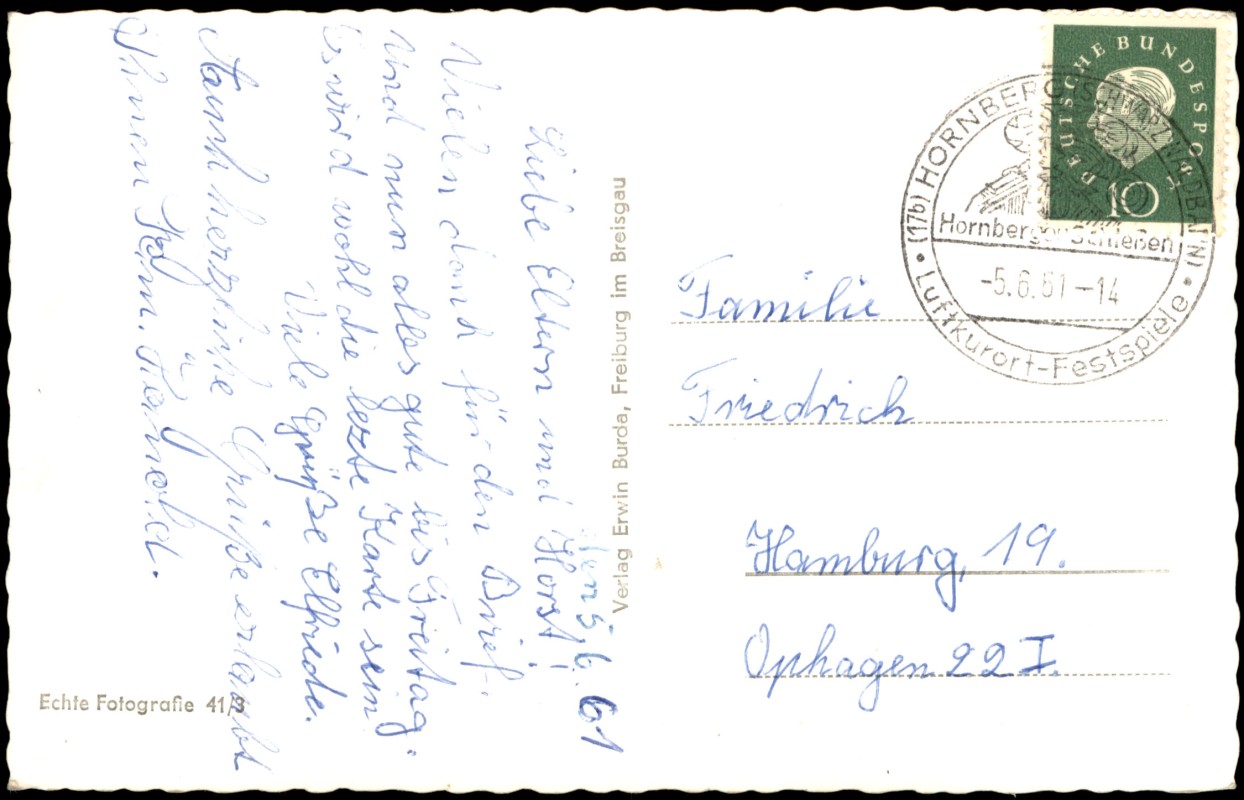 den 5.6.61
Liebe Eltern und Horst!
Vielen dank für den Brief.
Und nun alles gute bis Freitag.
Es wird wohl die lezte Karte sein
Viele Grüße Elfriede.
Auch herzliche Grüße erlaubt
Ihnen
Verlag Erwin Burda, Freiburg im Breisgau
Echte Fotografie 41/3
DEUTSCHE BUNDESPOST
10
(17b) HORNBERG (SCHWARZWALDBAHN)
Hornberger Schießen
-5.6.61-14
Luftkurort-Festspiele
Familie
Friedrich
Hamburg, 19.
Ophagen 22 I.